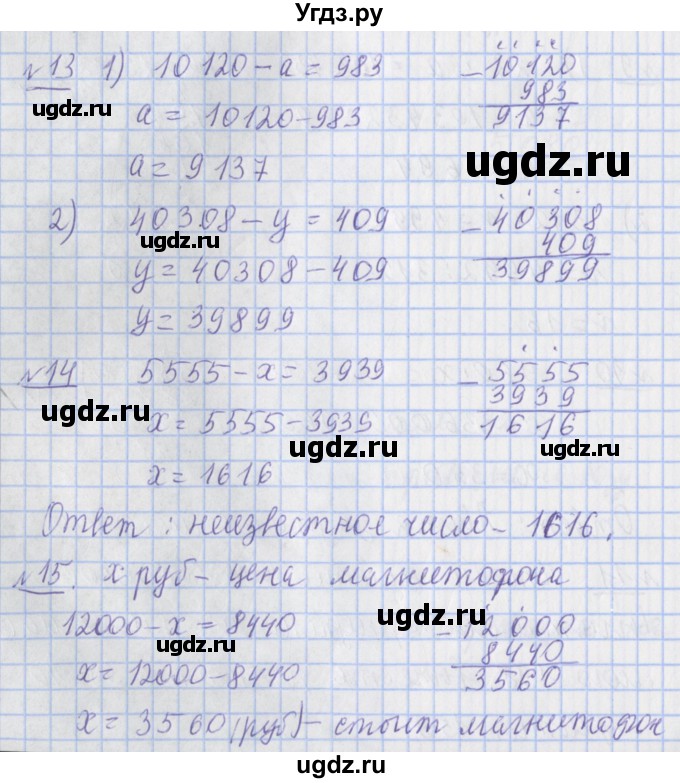 Угдз.ру
№13 1) 10120 - a = 983
- 10120
983
9137
a = 10120 - 983
a = 9137
2) 40308 - y = 409
- 40308
409
39899
y = 40308 - 409
y = 39899
№14 5555 - x = 3939
- 5555
3939
1616
x = 5555 - 3939
x = 1616
Ответ: неизвестное число - 1616.
№15. x руб - цена магнитофона
12000 - x = 8440
- 12000
8440
3560
x = 12000 - 8440
x = 3560 (руб) - стоит магнитофон
ugdz.ru
ugdz.ru
ugdz.ru
ugdz.ru
ugdz.ru
ugdz.ru
ugdz.ru
ugdz.ru
ugdz.ru
ugdz.ru